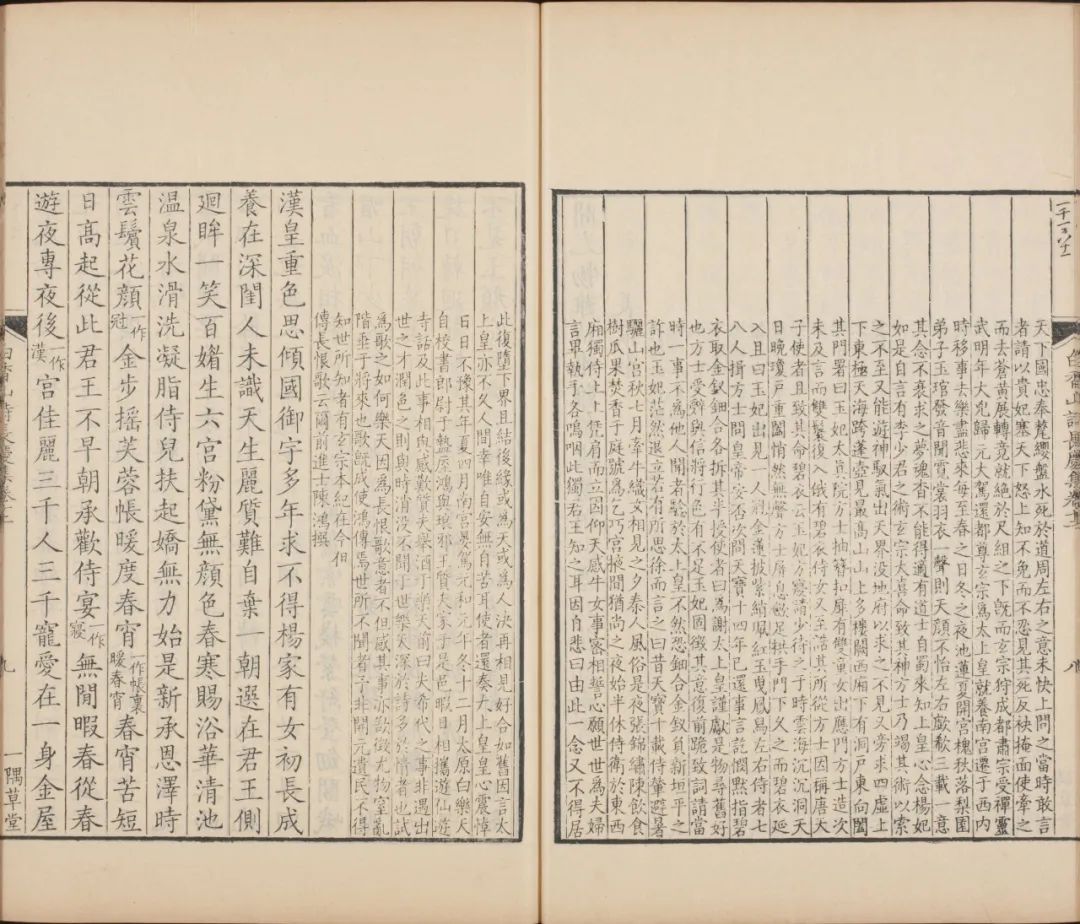 天下國忠奉氂纓盤水死於道周左右之意未快上問之當時敢言
者請以貴妃塞天下怒上知不免而不忍見其死反袂掩面使牽之
而去蒼黃展轉竟就絕於尺組之下既而玄宗狩成都肅宗受禪靈
武明年大兇歸元大駕還都尊玄宗爲太上皇就養南宮遷于西內
時移事去樂盡悲來每至春之日冬之夜池蓮夏開宮槐秋落梨園
弟子玉琯發音聞霓裳羽衣一聲則天顔不怡左右歔欷三載一意
其念不衰求之夢魂杳不能得適有道士自蜀來知上皇心念楊妃
如是自言有李少君之術玄宗大喜命致其神方士乃竭其術以索
之不至又能遊神馭氣出天界没地府以求之不見又旁求四虛上
下東極天海跨蓬壺見最高山上多樓闕西廂下有洞戸東向闔
其門署曰玉妃太真院方士抽簪扣扉有雙童女出應門方士造次
未及言而雙鬟復入俄有碧衣侍女又至詰其所從方士因稱唐天
子使者且致其命碧衣云玉妃方寢請少待之于時雲海沉沉洞天
日晚瓊戸重闔悄然無聲方士屏息斂足拱手門下久之而碧衣延
入且曰玉妃出見一人冠金蓮披紫綃珮紅玉曳鳳舄左右侍者七
八人揖方士問皇帝安否次問天寶十四年已還事言訖憫默指碧
衣取金釵鈿合各拆其半授使者曰爲謝太上皇謹獻是物尋舊好
也方士受辭與信將行色有不足玉妃固徵其意復前跪致詞請當
時一事不爲他人聞者驗於太上皇不然恐鈿合金釵負新垣平之
詐也玉妃茫然退立若有所思徐而言之曰昔天寶十載侍輦避暑
驪山宮秋七月牽牛織女相見之夕秦人風俗是夜張錦繡陳飲食
樹瓜果焚香于庭號爲乞巧宮掖間猶尚之夜始半休侍衛於東西
廂獨侍上上凭肩而立因仰天感牛女事密相誓心願世世爲夫婦
言畢執手各嗚咽此獨君王知之耳因自悲曰由此一念又不得居
此復墮下界且結後緣或爲天或爲人決再相見好合如舊因言太
上皇亦不久人間幸唯自安無自苦耳使者還奏太上皇皇心震悼
日日不豫其年夏四月南宮晏駕元和元年冬十二月太原白樂天
自校書郎尉于盩厔鴻與琅邪王質夫家于是邑暇日相攜遊仙遊
寺話及此事相與感歎質夫舉酒于樂天前曰夫希代之事非遇出
世之才潤色之則與時消没不聞于世樂天深於詩多於情者也試
爲歌之如何樂天因爲長恨歌意者不但感其事亦欲徵尤物窒亂
階垂于將來也歌既成使鴻傳焉世所不聞者予非開元遺民不得
知世所知者有玄宗本紀在今但
傳長恨歌云爾前進士陳鴻撰
漢皇重色思傾國御宇多年求不得楊家有女初長成
養在深閨人未識天生麗質難自棄一朝選在君王側
廻眸一笑百媚生六宮粉黛無顔色春寒賜浴華清池
温泉水滑洗凝脂侍兒扶起嬌無力始是新承恩澤時
雲鬢花顔一作冠金步摇芙蓉帳暖度春宵一作帳裏暖春宵春宵苦短
日高起從此君王不早朝承歡侍宴一作寢無閒暇春從春
遊夜專夜後一作漢宮佳麗三千人三千寵愛在一身金屋
九
一隅草堂